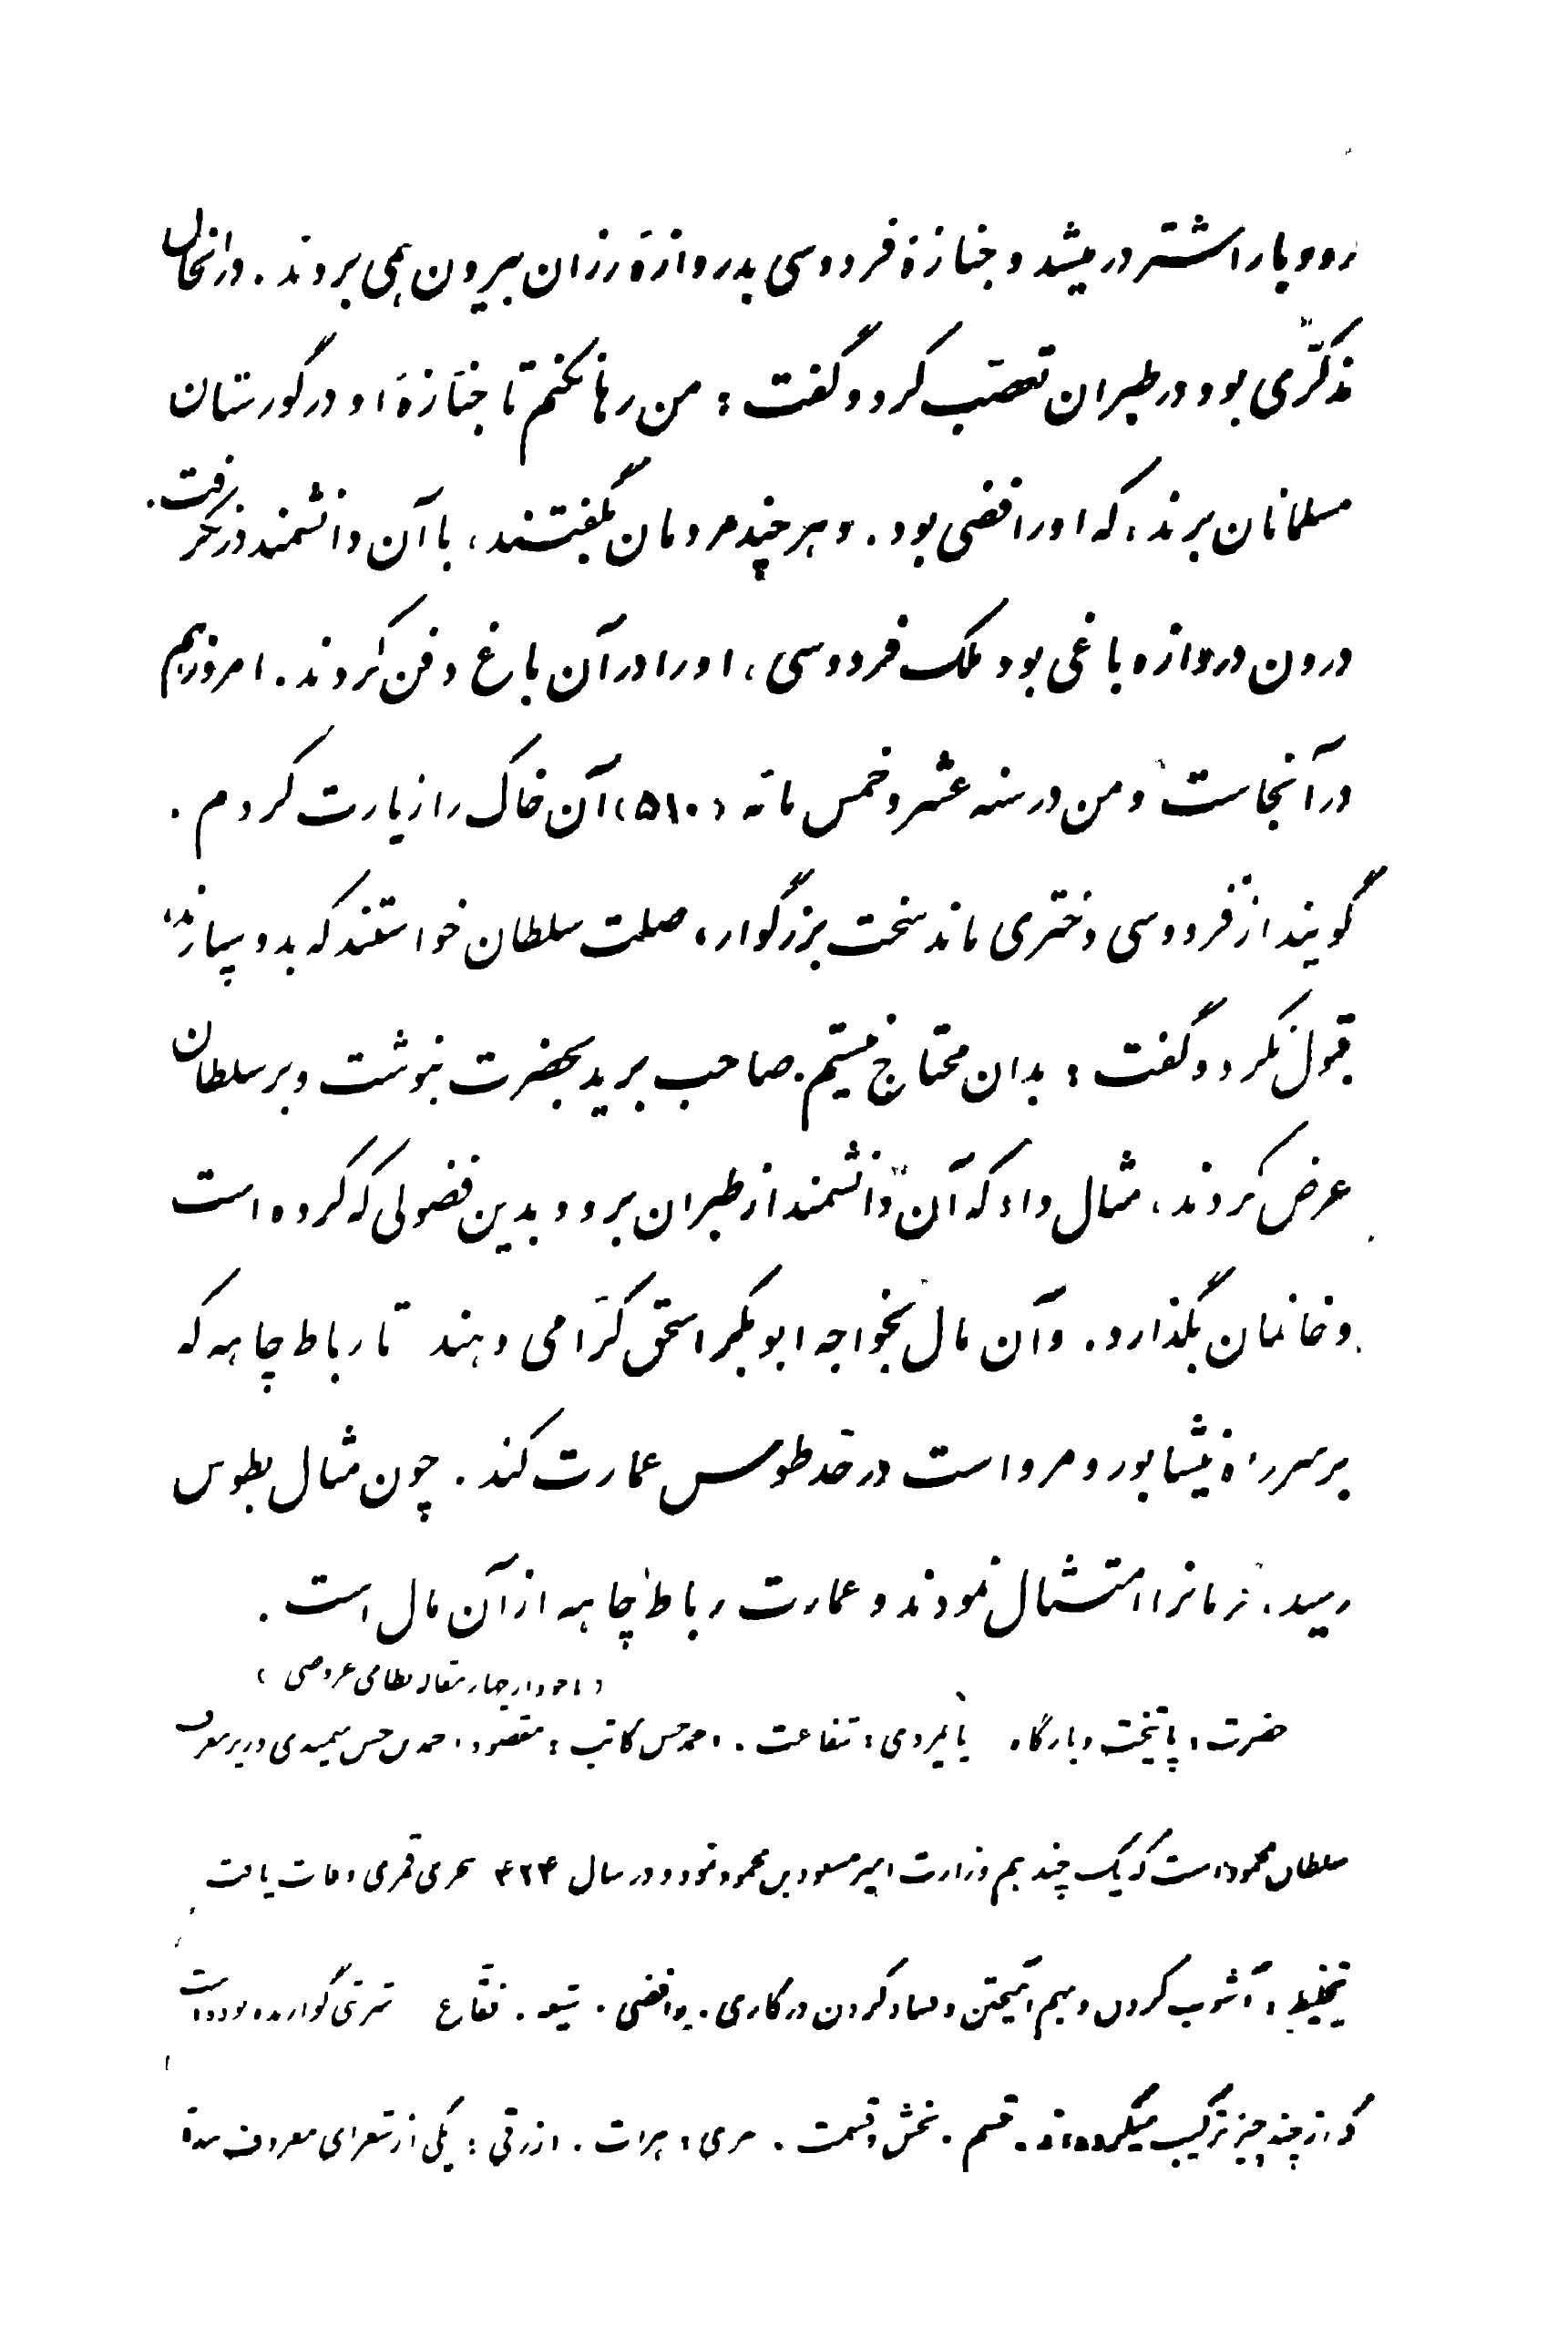 رود بار اشتر در میشد و جنازهٔ فردوسی بدروازهٔ رزان بیرون همی بردند. در آنحال
مذکّری بود در طبران تعصّب کرد و گفت: من رها نکنم تا جنازهٔ او در گورستان
مسلمانان برند، که او رافضی بود. و هر چند مردمان بگفتند، با آن دانشمند در نگرفت.
درون دروازه باغی بود ملک فردوسی، او را در آن باغ دفن کردند. امروز هم
در آنجاست و من در سنه عشر و خمس مائه (۵۱۰) آن خاک را زیارت کردم.
گویند از فردوسی دختری ماند سخت بزرگوار، صلت سلطان خواستند که بدو سپارند،
قبول نکرد و گفت: بدان محتاج نیستم. صاحب برید بحضرت بنوشت و بر سلطان
عرض کردند، مثال داد که آن دانشمند از طبران برود بدین فضولی که کرده است
و خانمان بگذارد. و آن مال بخواجه ابوبکر اسحق کرّامی دهند تا رباط چاهه که
بر سر راه نیشابور و مرو است در حد طوس عمارت کند. چون مثال بطوس
رسید، فرمانرا امتثال نمودند و عمارت رباط چاهه از آن مال است.
(ماخوذ از چهار مقاله نظامی عروضی)
حضرت: پایتخت و بارگاه پایمردی: شفاعت. احمد حسن کاتب: مقصود، احمد بن حسن میمندی وزیر معروف
سلطان محمود است که یک چند هم وزارت امیر مسعود بن محمود نمود و در سال ۴۲۴ هجری قمری وفات یافت
تخلیط: آشوب کردن و بهم آمیختن و فساد کردن در کاری. رافضی. شیعه. فقّاع شربتی گوارنده بوده است
که از چند چیز ترکیب میکرده‌اند. قسم. بخش و قسمت. هری: هرات. ازرقی: یکی از شعرای معروف سدهٔ